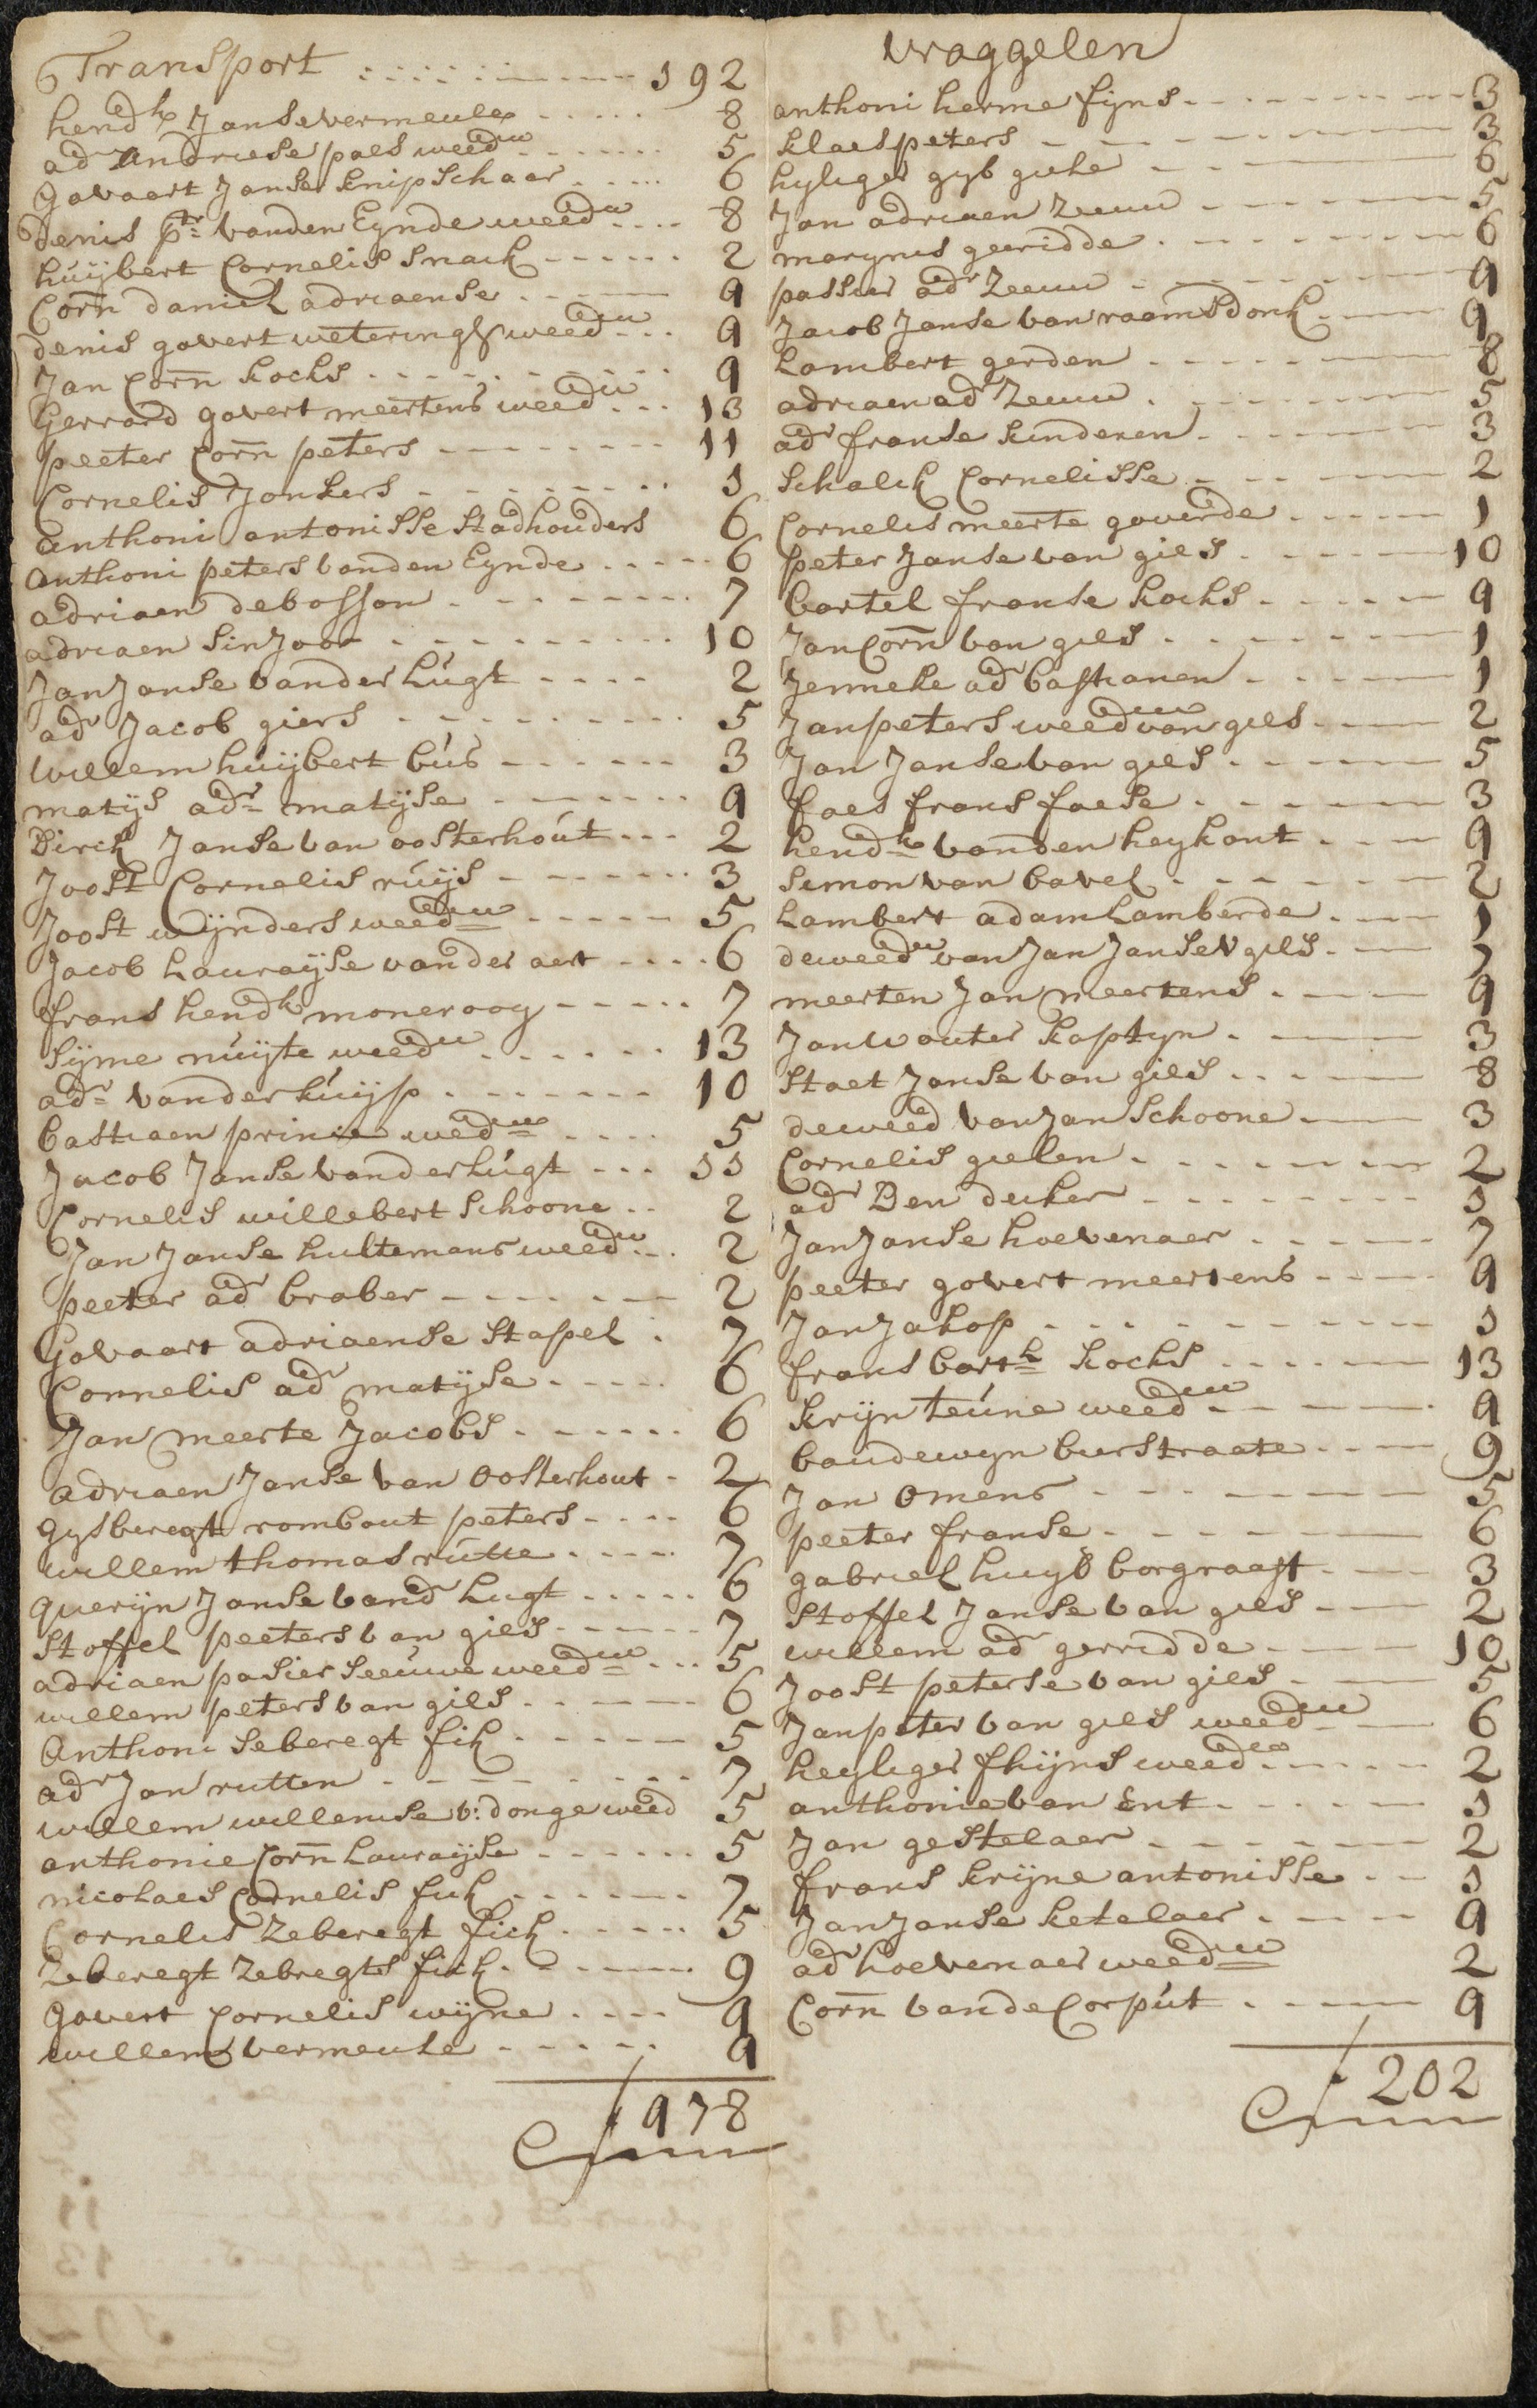 Transport 192
hendk Janse vermeulen 8
ad Andriese paes weedw 5
Govaart Janse Knipschaer 6
denis ptr vanden Eynde weedw 8
huijbert Cornelis Snack 2
Corn daniel adriaense 9
denis govert weterings weedw 9
Jan Corn kocks 9
Gerrard govert meertens weedw 13
peeter Corn peters 11
Cornelis Jonkers 1
Anthoni antonisse stadhouders 6
Anthoni peters vanden Eynde 6
adriaen debosson 7
adriaen Sinjoor 10
Jan Janse vander Lugt 2
adr Jacob giers 5
willem huijbert bús 3
matijs adr matijse 9
Dirck Janse van oosterhoút 2
Joost Cornelis rúijs 3
Joost wijnders weedw 5
Jacob Laurayse vander aert 6
frans hendk moneroog 7
Sijme núijte weedw 13
adr vander kúijp 10
Bastiaen prince wedw 5
Jacob Janse vander Lúgt 11
Cornelis willebert Schoone 2
Jan Janse hultemans weedw 2
peeter adr braber 2
Govaart adriaense Stapel 7
Cornelis adr matijse 6
Jan meerte Jacobs 6
adriaen Janse van Oosterhout 2
gysberegt rombout peters 6
willem thomas rutte 7
querijn Janse vandr Lugt 6
Stoffel peeters van giels 7
adriaen pasier seeúwe weedw 5
willem peters van gils 6
Anthoni Seberegt fick 5
adr Jan rutten 7
willem willemse v: donge weed 5
anthonie Corn Laurayse 5
nicolaes Cornelis fick 7
Cornelis Zeberegt fick 5
Zeberegt Zebregts fick 9
Govert Cornelis wijne 9
willem vermeule 9
f 978
vraggelen
anthoni herme fijns 3
klaes peters 3
hyliger gyb giele 6
Jan adriaen Zeeuw 5
marynus geeridde 6
passier adr Zeeuw 9
Jacob Janse van raamsdonk 9
Lambert gerden 8
adriaen adr Zeeuw 5
adr franse kinderen 3
Schalck Cornelisse 2
Cornelis meerte goverde 1
peter Janse van giels 10
bartel franse kocks 9
Jan Corn van giels 1
Jenneke adr bastianen 1
Jan peters weedw van giels 2
Jan Janse van giels 5
faes frans faese 3
hendk vanden heykant 9
Simon van bavel 2
Lambert adam Lamberde 1
deweedw van Jan Janse v giels 7
meerten Jan meertens 9
Jan wouter kaptyn 3
Staet Janse van giels 8
deweed van Jan Schoone 3
Cornelis gielen 2
adr Ben decker 1
Jan Janse hoevenaer 7
peeter govert meertens 9
Jan Jakop 1
frans barth kocks 13
krijn teúne weedw 9
boudewyn buerstraate 9
Jan Omens 5
peeter franse 6
gabriel huyb borgraaft 3
Stoffel Janse van giels 2
willem adr gerridde 10
Joost peterse van giels 5
Jan peter van giels weedw 6
heyliger fhijns weedw 2
anthonie van Ent 1
Jan gestelaer 2
frans krijne antonisse 1
Jan Janse ketelaer 9
adr hoevenaer weedw 2
Corn vande Corpút 9
f 202